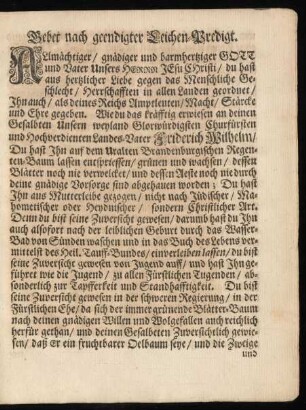 Gebet nach geendigter Leichen-Predigt.
ALmächtiger / gnädiger und barmhertziger GOTT
und Vater Unsers HErrn JEsu Christi / du hast
aus hertzlicher Liebe gegen das Menschliche Ge-
schlecht / Herrschafften in allen Landen geordnet /
Ihn auch / als deines Reichs Amptleuten / Macht / Stärcke
und Ehre gegeben. Wie du das kräfftig erwiesen an deinen
Gesalbten Unsern weyland Glorwürdigsten Churfürsten
und Hochverdienten Landes-Vater Friderich Wilhelm /
Du hast Ihn auf dem Uralten Brandenburgischen Regen-
ten-Baum lassen entspriessen / grünen und wachsen / dessen
Blätter noch nie verwelcket / und dessen Aeste noch nie durch
deine gnädige Vorsorge sind abgehauen worden ; Du hast
Ihn aus Mutterleibe gezogen / nicht nach Jüdischer / Ma-
hometischer oder Heydnischer / sondern Christlicher Art.
Denn du bist seine Zuversicht gewesen / darumb hast du Ihn
auch alsofort nach der leiblichen Geburt durch das Wasser-
Bad von Sünden waschen und in das Buch des Lebens ver-
mittelst des Heil. Tauff-Bundes / einverleiben lassen / du bist
seine Zuversicht gewesen von Jugend auff / und hast Ihn ge-
führet wie die Jugend / zu allen Fürstlichen Tugenden / ab-
sonderlich zur Tapfferkeit und Standhafftigkeit. Du bist
seine Zuversicht gewesen in der schweren Regierung / in der
Fürstlichen Ehe / da sich der immergrünende Blätter-Baum
nach deinen gnädigen Willen und Wolgefallen auch reichlich
herfür gethan / und deinen Gesalbeten Zuversichtlich gewie-
sen / daß Er ein fruchtbarer Oelbaum seye / und die Zweige
und